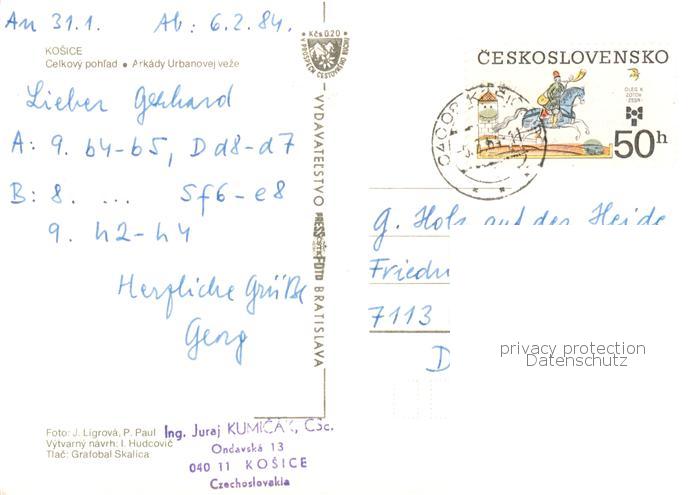 An 31.1. Ab: 6.2.84.
KOŠICE
Celkový pohľad • Arkády Urbanovej veže
Lieber Gerhard
A: 9. b4-b5, Dd8-d7
B: 8. ... Sf6-e8
9. h2-h4
Herzliche Grüße
Georg
Foto: J. Ligrová, P. Paul
Výtvarný návrh: I. Hudcovič
Tlač: Grafobal Skalica
Ing. Juraj KUMIČÁK, CSc.
Ondavská 13
040 11 KOŠICE
Czechoslovakia
Kčs 0.20
V PROSPECH CESTOVNÉHO RUCHU
VYDAVATEĽSTVO PRESSFOTO BRATISLAVA
ČESKOSLOVENSKO
OLEG K.
ZOTOV
ZSSR
50h
G. Holz auf der Heide
7113
D
privacy protection
Datenschutz